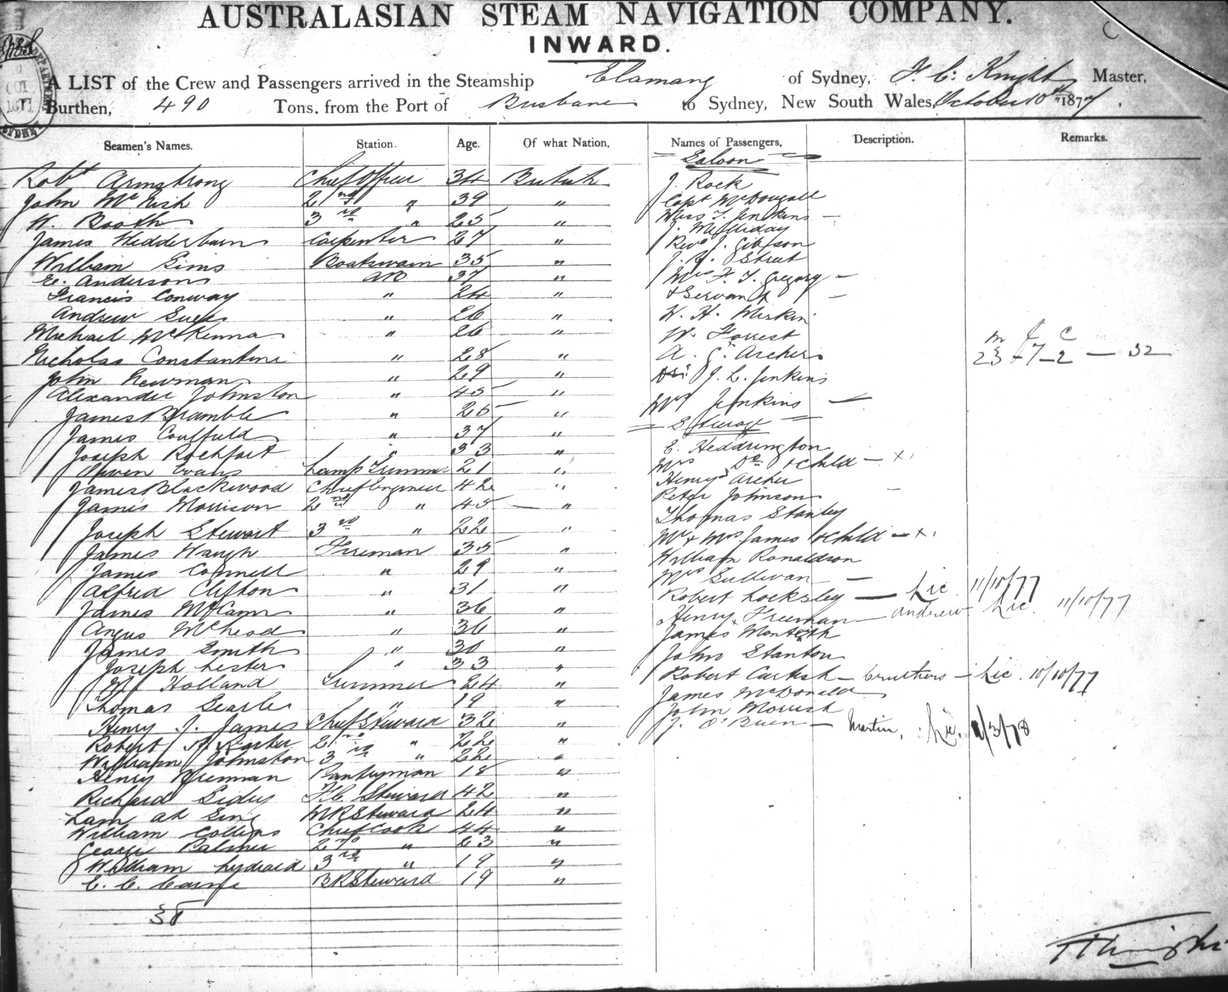 AUSTRALASIAN STEAM NAVIGATION COMPANY.
INWARD.
A LIST of the Crew and Passengers arrived in the Steamship Elamang of Sydney, Master,
Burthen, 490 Tons, from the Port of Brisbane to Sydney, New South Wales, October 10th 1877.
Seamen's Names. Station. Age. Of what Nation. Names of Passengers, Description. Remarks.
Saloon
Robt Armstrong Chief Officer 34 British J. Rock
John McNish 2nd " 39 " Capt McDougall
W. Booth 3rd " 25 " Miss Jenkins —
James Wedderburn Carpenter 27 "
William Sims Boatswain 35 " Revd J. Gibson
E. Anderson AB 37 " Street
Francis Conway " 24 " Mrs F. T. Gregory —
Andrew " 26 " & Servant —
Michael McKenna " 26 " W. H.
Nicholas Constantine " 28 " W. Forrest
m J C
23 - 7 - 2 — 32
John Newman " 29 " A. Archer
Alexander Johnston " 45 " J. L. Jenkins
James Bramble " 25 " Mrs Jenkins —
James Caulfield " 37 " Steerage
Joseph Rochfort " 33 " E. Heddrington
Owen Evans Lamp Trimmer 21 " Mrs Do & Child — x
James Blackwood Chief Engineer 42 " Henry Archer
James Morrison 2nd " 45 — " Peter Johnson
Joseph Stewart 3rd " 22 " Thomas Stanley
James Waugh Fireman 35 " Mr & Mrs James & Child — x
James Connell " 29 " William Ronaldson
Alfred Clifton " 31 " Mrs Sullivan —
James McCann " 36 " Robert Locksley — Lic. 11/10/77
Angus " 36 " Henry Freeman Andrew Lic. 11/10/77
James Smith " 30 " James Monteith
Joseph Lester " 33 " John Stanton
Holland Trimmer 24 " Robert — Lic. 10/10/77
Thomas Searle " 19 " James McDonald
Henry J. James Chief Steward 32 " John
Robert 2nd " 22 " J. O'Brien — Martin, Lic. /3/78
William Johnston 3rd " 22 "
Henry Pantryman 18 "
Richard F.C. Steward 42 "
Lam ah Sing M R Steward 24 "
William Collins Chief Cook 44 "
George Palmer 2nd " 23 "
William 3rd " 19 "
E. C. B R Steward 19 "
38